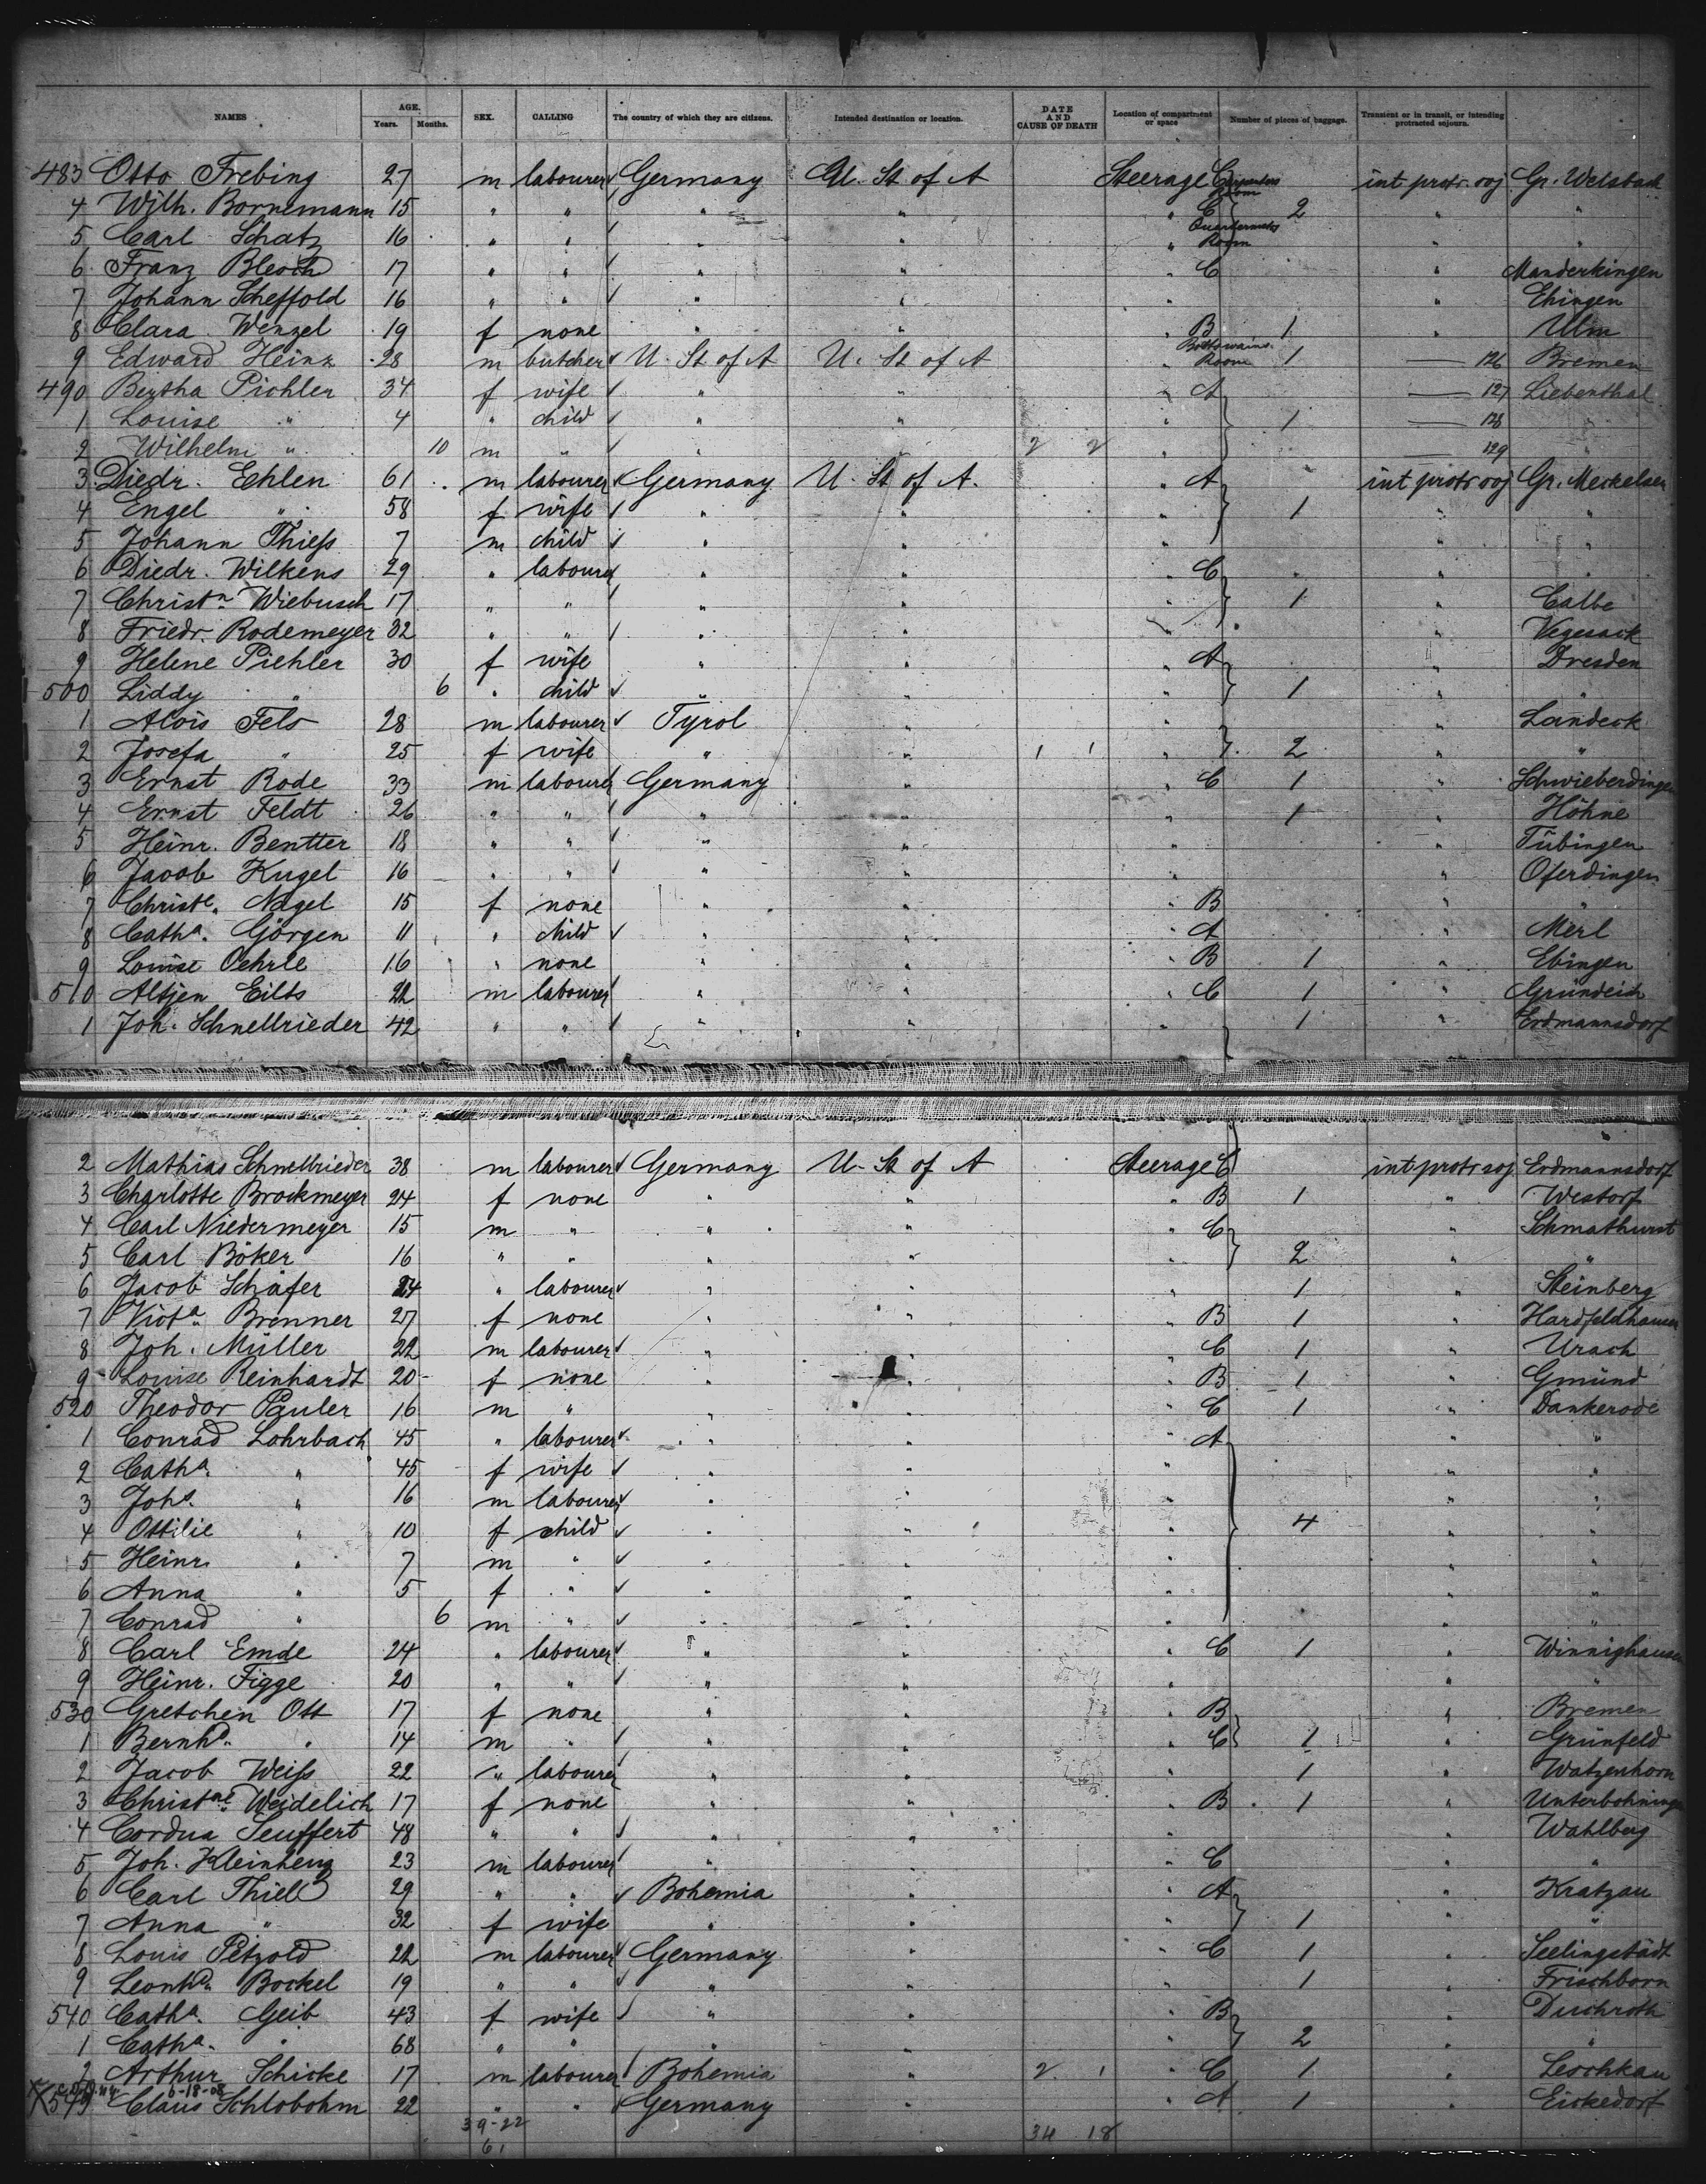 NAMES AGE. Years. Months. SEX. CALLING The country of which they are citizens. Intended destination or location. DATE AND CAUSE OF DEATH Location of compartment or space Number of pieces of baggage. Transient or in transit, or intending protracted sojourn.
483 Otto Frebing 27 m labourer Germany U. St of A Steerage Carpenters Room int protr. soj Gr. Welsbach
4 Wilh. Bornemann 15 " " " " " C 2 " "
5 Carl Schatz 16 " " " " " Quartermets Room " "
6 Franz Bloch 17 " " " " " C " Manderkingen
7 Johann Scheffold 16 " " " " " " Ehingen
8 Clara Wenzel 19 f none " " " B 1 " Ulm
9 Edward Heinz 28 m butcher U. St of A U. St of A " Bottswains Room 1 — 126 Bremen
490 Bertha Pichler 34 f wife " " " A — 127 Liebenthal
1 Louise " 4 " child " " " 1 — 128
2 Wilhelm " 10 m " " " 2 2 " — 129 "
3 Diedr. Ehlen 61 m labourer Germany U. St of A. " A int protr soj Gr. Meckelsen
4 Engel " 58 f wife " " " 1 " "
5 Johann Thiess 7 m child " " " " "
6 Diedr. Wilkens 29 " labourer " " " C " "
7 Christn Wiebusch 17 " " " " " 1 " Calbe
8 Friedr. Rodemeyer 32 " " " " " " Vegesack
9 Helene Piehler 30 f wife " " " A " Dresden
500 Liddy " 6 " child " " " 1 " "
1 Alois Fels 28 m labourer Tyrol " " " Landeck
2 Josefa " 25 f wife " " 1 1 " 2 " "
3 Ernst Rode 33 m labourer Germany " " C 1 " Schwieberdingen
4 Ernst Feldt 26 " " " " " 1 " Höhne
5 Heinr. Bentter 18 " " " " " " Tübingen
6 Jacob Kugel 16 " " " " " " Oferdingen
7 Christe. Nagel 15 f none " " " B " "
8 Catha. Görgen 11 " child " " " A " Merl
9 Louise Oehrle 16 " none " " " B 1 " Ebingen
510 Altjen Eilts 22 m labourer " " " C 1 " Gründeich
1 Joh. Schnellrieder 42 " " " " " 1 " Erdmannsdorf
2 Mathias Schnellrieder 38 m labourer Germany U. St of A Steerage C int protr soj. Erdmannsdorf
3 Charlotte Brockmeyer 24 f none " " " B 1 " Westorf
4 Carl Niedermeyer 15 m " " " " C " Schmathurst
5 Carl Böker 16 " " " " " 2 " "
6 Jacob Schäfer 24 " labourer " " " 1 " Steinberg
7 Victa Brenner 27 f none " " " B 1 " Hardfeldhausen
8 Joh. Müller 22 m labourer " " " C 1 " Urach
9 Louise Reinhardt 20 f none " " " B 1 " Gmünd
520 Theodor Pauler 16 m " " " " C 1 " Dankerode
1 Conrad Lohrbach 45 " labourer " " " A " "
2 Catha. " 45 f wife " " " " "
3 Johs. " 16 m labourer " " " " "
4 Ottilie " 10 f child " " " 4 " "
5 Heinr. " 7 m " " " " " "
6 Anna " 5 f " " " " " "
7 Conrad " 6 m " " " " " "
8 Carl Emde 24 " labourer " " " C 1 " Winnighausen
9 Heinr. Figge 20 " " " " " " "
530 Gretchen Ott 17 f none " " " B " Bremen
1 Bernhd. " 14 m " " " " C 1 " Grünfeld
2 Jacob Weiss 22 " labourer " " " 1 " Watzenhorn
3 Christne. Weidelich 17 f none " " " B 1 " Unterbohningen
4 Cordua Seuffert 48 " " " " " " Wahlberg
5 Joh. Kleinhenz 23 m labourer " " " C " "
6 Carl Thiell 29 " " Bohemia " " A " Kratzau
7 Anna " 32 f wife " " " 1 " "
8 Louis Petzold 22 m labourer Germany " " C 1 " Seelingstädt
9 Leonhd. Bockel 19 " " " " " 1 " Frischborn
540 Catha. Geib 43 f wife " " " B " Duchroth
1 Catha. " 68 " " " " " 2 " "
2 Arthur Schicke 17 m labourer Bohemia " 2 1 " C 1 " Leschkau
6-18-08
543 Claus Schlobohm 22 " " Germany " " A 1 " Eickedorf
39-22 34 18
61